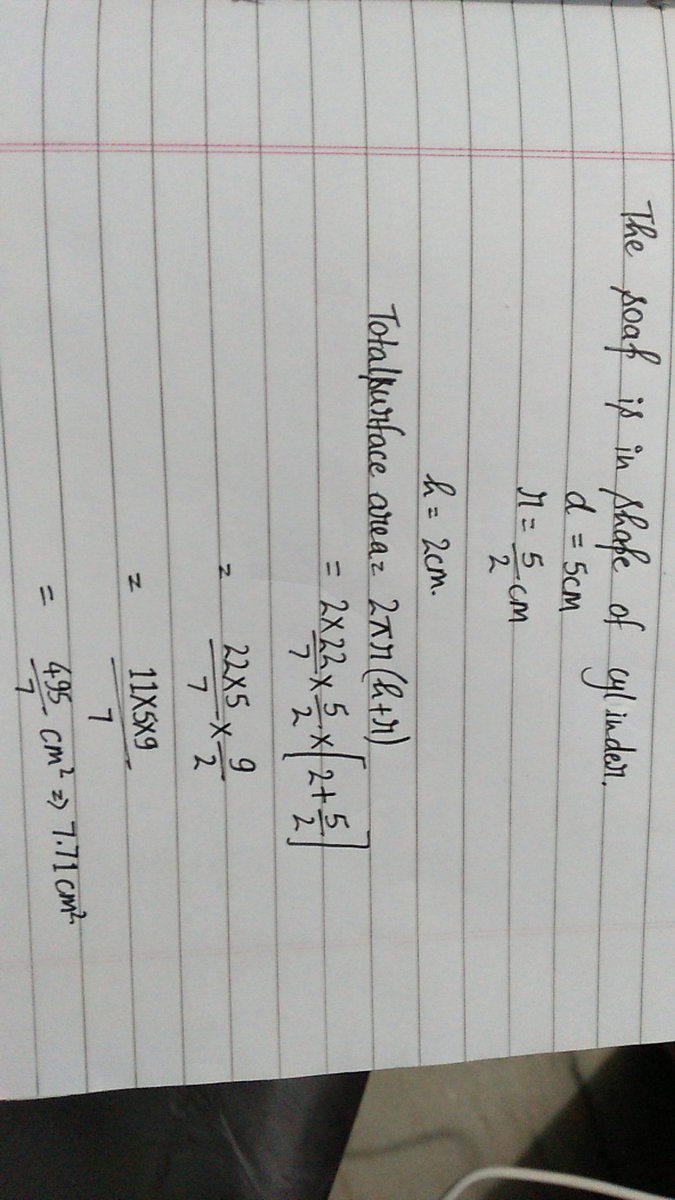 The soap is in shape of cylinder.
d = 5cm
r = 5/2 cm
h = 2cm.
Total surface area = 2πr(h+r)
= 2×22/7 × 5/2 × [2+5/2]
= 22×5/7 × 9/2
= 11×5×9/7
= 495/7 cm² ⇒ 7.71 cm²